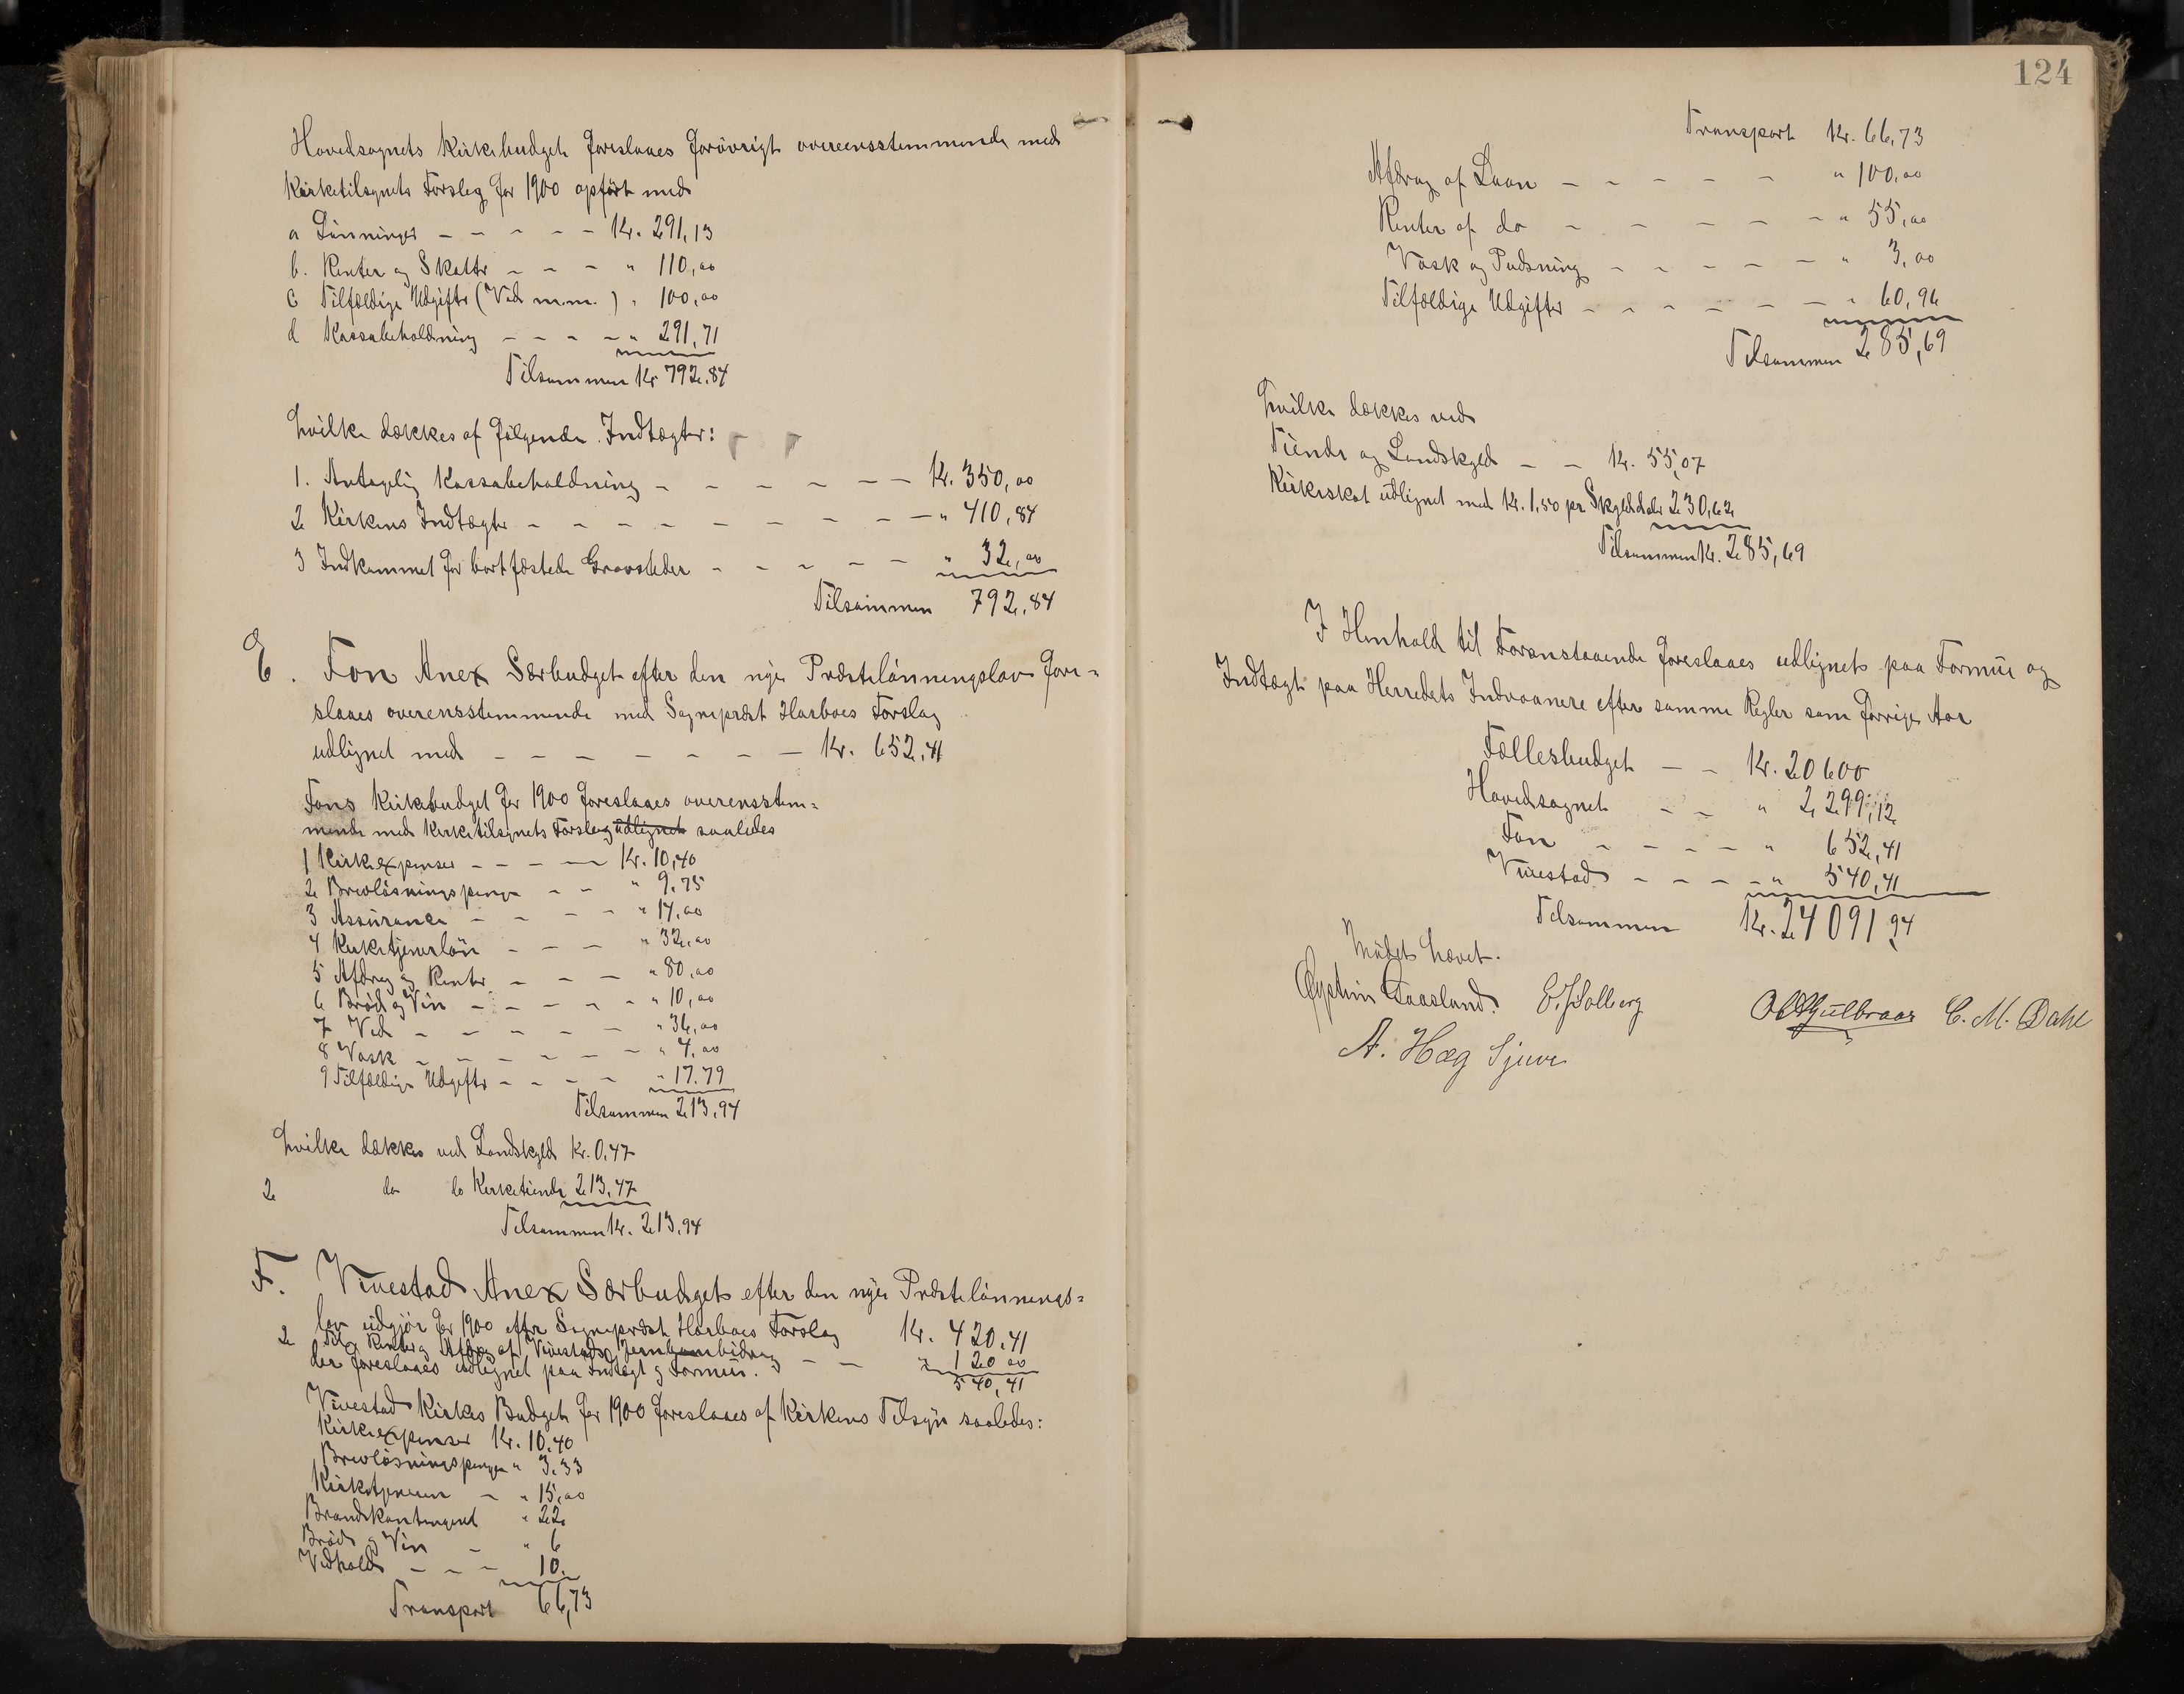 Hovedsognets Kirkebudget foreslaaes forøvrigt overeensstemmende med
Kirketilsynets Forslag for 1900 opført med
a Lønninger - - - - - Kr. 291,13
b. Renter og Skatter - - - " 110,00
c Tilfældige Udgifter (Ved m.m.) " 100,00
d Kassabeholdning - - - - " 291,71
Tilsammen Kr 792.84
hvilke dækkes af følgende Indtægter:
1. Antagelig Kassabeholdning - - - - - - - Kr. 350,00
2 Kirkens Indtægter - - - - - - - - - " 410,84
3 Indkommet for bortfæstede Gravsteder - - - - - " 32,00
Tilsammen 792,84
E. Fon Anex Særbudget efter den nye Præstelønningslov fore=
slaaes overensstemmende med Sogneprest Harboes Forslag
udlignet med - - - - - - - Kr. 652,41
Fons Kirkebudget for 1900 foreslaaes overensstem=
mende med Kirketilsynets Forslag udlignet saaledes
1 Kirkeexpenser - - - - Kr. 10,40
2 Brevløsningspenge - - " 9.75
3 Assurance - - - - " 14,00
4 Kirketjenerløn - - - " 32,00
5 Afdrag og Renter - - - " 80,00
6 Brød og Vin - - - - - " 10,00
7 Ved - - - - - " 36,00
8 Vask - - - - - - " 4,00
9 Tilfældige Udgifter - - - - " 17.79
Tilsammen 213,94
hvilke dækkes ved Landskyld Kr. 0,47
2 do do Kirketiende 213,47
Tilsammen Kr. 213,94
F. Vivestad Anex Særbudget efter den nye Præstelønnings=
lov udgjør for 1900 efter Sogneprest Harboes Forslag Kr. 420,41
2 Til Renter og Afdrag af Vivestads Jernbanebidrag - - " 120 00
der foreslaaes udlignet paa Indtægt og Formue. 540,41
Vivestad Kirkes Budget for 1900 foreslaaes af Kirkens Tilsyn saaledes:
Kirkeexpenser Kr. 10,40
Brevløsningspenge " 3,33
Kirketjeneren - " 15,00
Brandkontingent " 22
Brød og Vin - " 6
Vedhold - - - 10.
Transport 66,73
124
Transport Kr. 66,73
Afdrag af Laan - - - - - " 100,00
Renter af do - - - - - " 55,00
Vask og Pudsning - - - - - " 3,00
Tilfældige Udgifter - - - - - " 60,96
Tilsammen 285,69
hvilke dækkes ved
Tiende og Landskyld - - Kr. 55,07
Kirkeskat udlignet med Kr. 1,50 pr Skylddaler 230,62
Tilsammen Kr. 285,69
I Henhold til Foranstaaende foreslaaes udlignet paa Formue og
Indtægt paa Herredets Indvaanere efter samme Regler som forrige Aar
Fællesbudget - - Kr. 20600
Hovedsognet - - " 2299,12
Fon - - - - " 652,41
Vivestad - - - - " 540,41
Tilsammen Kr. 24091,94
Mødet hævet.
Øystein Gaasland. E. Solberg C. M. Dahl
A. Hæg Sjuve